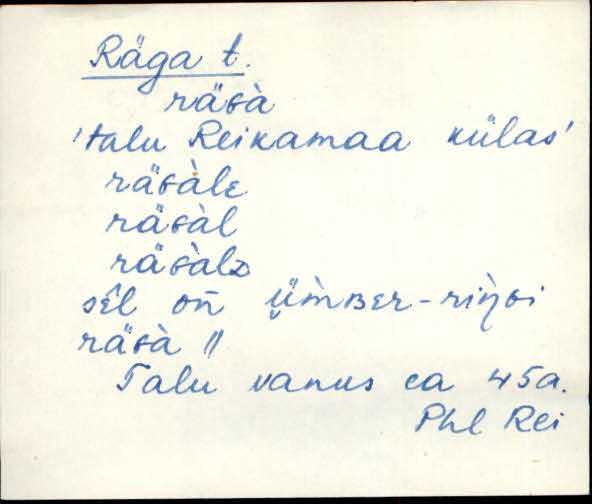 Räga t.
räɢà
'talu Reikamaa külas'
räɢàlᴇ
räɢàl
räɢàlᴅ
sêl on̄ ümʙᴇr-riŋ̀ɢi
räɢà ||
Talu vanus ca 45a.
Phl Rei